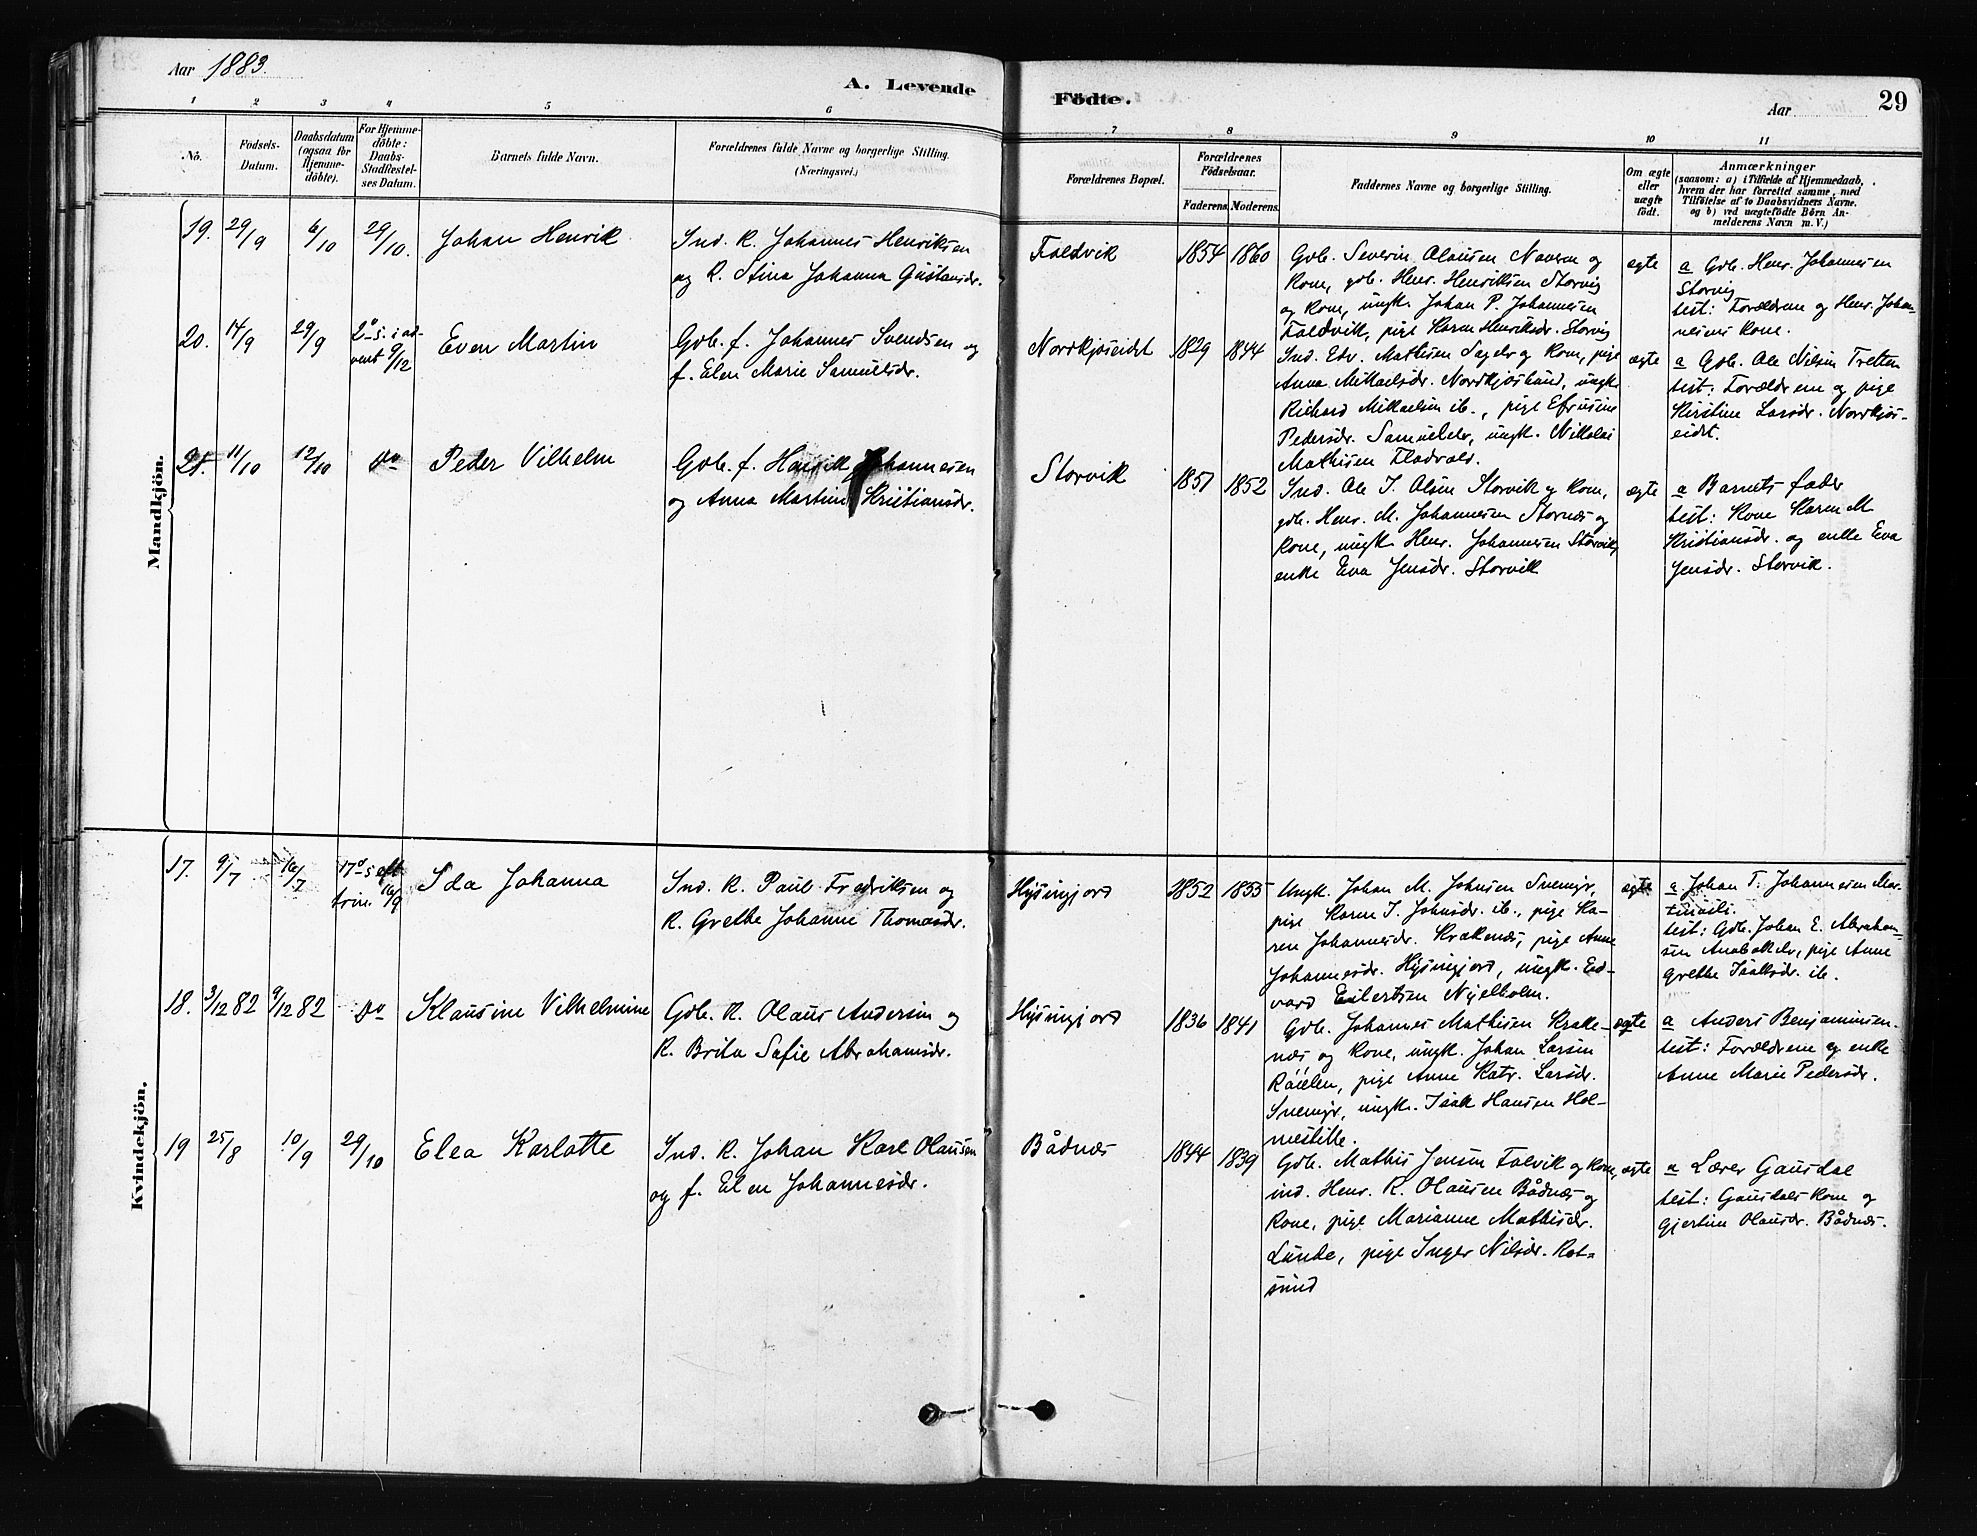 Aar 1883.
A. Levende Födte.
Aar
29
1 2 3 4 5 6 7 8 9 10 11
No.
Födsels-Datum.
Daabsdatum (ogsaa for Hjemmedöbte).
For Hjemmedöbte: Daabs-Stadfæstelses Datum.
Barnets fulde Navn.
Forældrenes fulde Navne og borgerlige Stilling.
(Næringsvei.)
Forældrenes Bopæl.
Forældrenes Födselsaar.
Faderens. Moderens.
Faddernes Navne og borgerlige Stilling.
Om ægte eller uægte födt.
Anmærkninger
(saasom: a) i Tilfælde af Hjemmedaab,
hvem der har forrettet samme, med
Tilföielse af to Daabsvidners Navne.
og b) ved uægtefödte Börn An-
melderens Navn m.V.)
Mandkjön.
19. 29/9 6/10 29/10. Johan Henrik
Ind. K. Johannes Henriksen
og K. Stina Johanna Gustavsdr.
Faldvik 1854 1860
Gdb. Severin Olausen Naveren og
Kone, gdb. Henr. Henriksen Storvig
og Kone, ungk. Johan P. Johannesen
Faldvik, pige Karen Henriksdr. Storvig
ægte
a Gdb. Henr. Johannesen
Storvig
test: Forældrene og Henr. Johan-
nesens Kone.
20. 14/9 29/9 2d s. i ad-
vent 9/12
Even Martin
Gdb. f. Johannes Svendsen og
f. Elen Marie Samuelsdr.
Nordkjoseidet 1829 1844
Ind. Edv. Mathisen Sagelv og Kone, pige
Anna Mikkelsdr. Nordkjosbund, ungk.
Richard Mikkelsen ib., pige Efrusine
Pedersdr. Samuelelv, ungk. Nikolai
Mathisen Fladvold.
ægte
a Gdb. Ole Nilsen Tretten
test: Forældrene og pige
Kirstine Larsdr. Nordkjos-
eidet.
21. 11/10 12/10 do Peder Vilhelm
Gdb. f. Henrik Johannesen
og Anna Martina Kristiansdr.
Storvik 1851 1852
Ind. Ole J. Olsen Storvik og Kone,
gdb. Henr. M. Johannesen Stornæs og
Kone, ungk. Henr. Johannesen Storvik,
enke Eva Jensdr. Storvik
ægte
a Barnets fader
test: Kone Karen M.
Kristiansdr. og enke Eva
Jensdr. Storvik.
Kvindekjön.
17. 9/7 16/7 17d s. eft.
trin. 16/9
Ida Johanna
Ind. K. Paul Fredriksen og
K. Grethe Johanne Thomasdr.
Hysingjord 1852 1855
Ungk. Johan M. Johnsen Snemyr,
pige Karen J. Johnsdr. ib., pige Ka-
ren Johannesdr. Krakenæs, pige Anne
Johannesdr. Hysingjord, ungk. Ed-
vard Eilertsen Nyelholm.
ægte
a Johan T. Johannesen Mar-
test: Gdb. Johan E. Abraham-
sen, pige Anne
Grethe Isaksdr. ib.
18. 3/12 82 9/12 82 do Klausine Vilhelmine
Gdb. K. Olaus Andersen og
K. Brita Sofie Abrahamsdr.
Hysingjord 1836 1841
Gdb. Johannes Mathisen Krake-
næs og Kone, ungk. Johan Larsen
Röielen, pige Anne Katr. Larsdr.
Snemyr, ungk. Isak Hansen Hol-
meslitle.
ægte
a Anders Benjaminsen.
test: Forældrene og enke
Anne Marie Pedersdr.
19 25/8 10/9 29/10 Elea Karlotte
Ind. K. Johan Karl Olausen
og f. Elen Johannesdr.
Bådnæs 1844 1839
Gdb. Mathis Jensen Falvik og Kone,
ind. Henr. K. Olausen Bådnæs og
Kone, pige Marianne Mathisdr.
Lunde, pige Inger Nilsdr. Rot-
sund
ægte
a Lærer Gausdal
test: Gausdals Kone og
Gjertine Olausdr. Bådnæs.